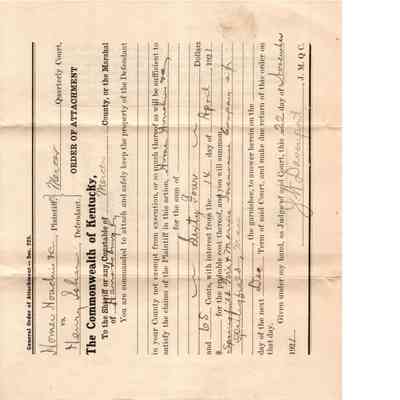 General Order of Attachment — Sec. 223.
Plaintiff, Mercer Quarterly Court,
vs.
Henry Defendant, ORDER OF ATTACHMENT
The Commonwealth of Kentucky,
To the Sheriff or any Constable of Mercer County, or the Marshal
of
You are commanded to attach and safely keep the property of the Defendant
in your County not exempt from execution, or so much thereof as will be sufficient to
satisfy the claims of the Plaintiff in this action,
for the sum of
Sixty Four Dollars
and 65 Cents, with interest from the 14 day of April 1921
for the probable cost thereof, and you will summon
Springfield Fire & Marine Insurance Company of
Springfield, Mass
the garnishee, to answer herein on the
day of the next Dec Term of said Court, and make due return of this order on
that day.
Given under my hand, as Judge of said Court, this 22 day of November
1921. J. M. Q. C.